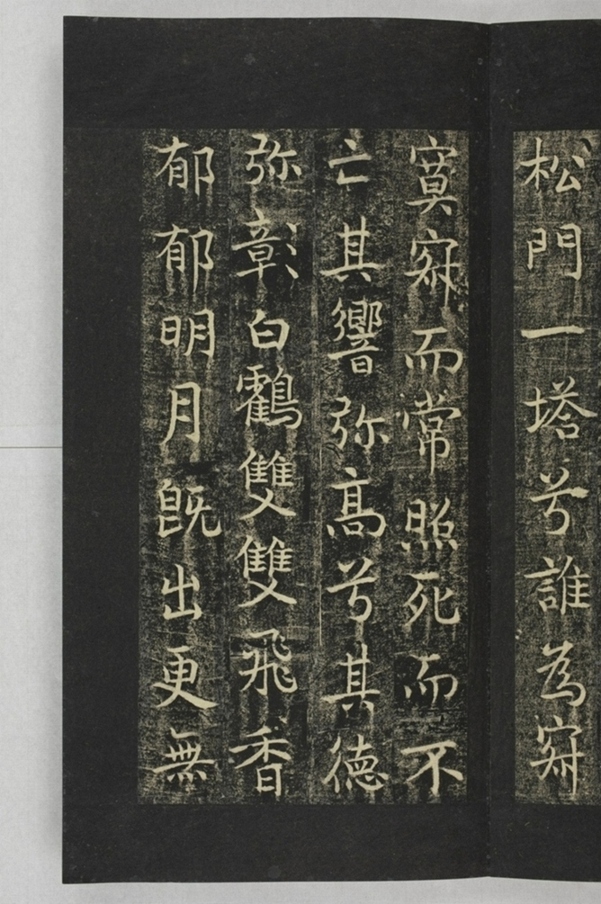 松門一塔兮誰為㝥
寞㝥而常照死而不
亡其響弥高兮其德
弥彰白鸖雙雙飛香
郁郁明月既出更無